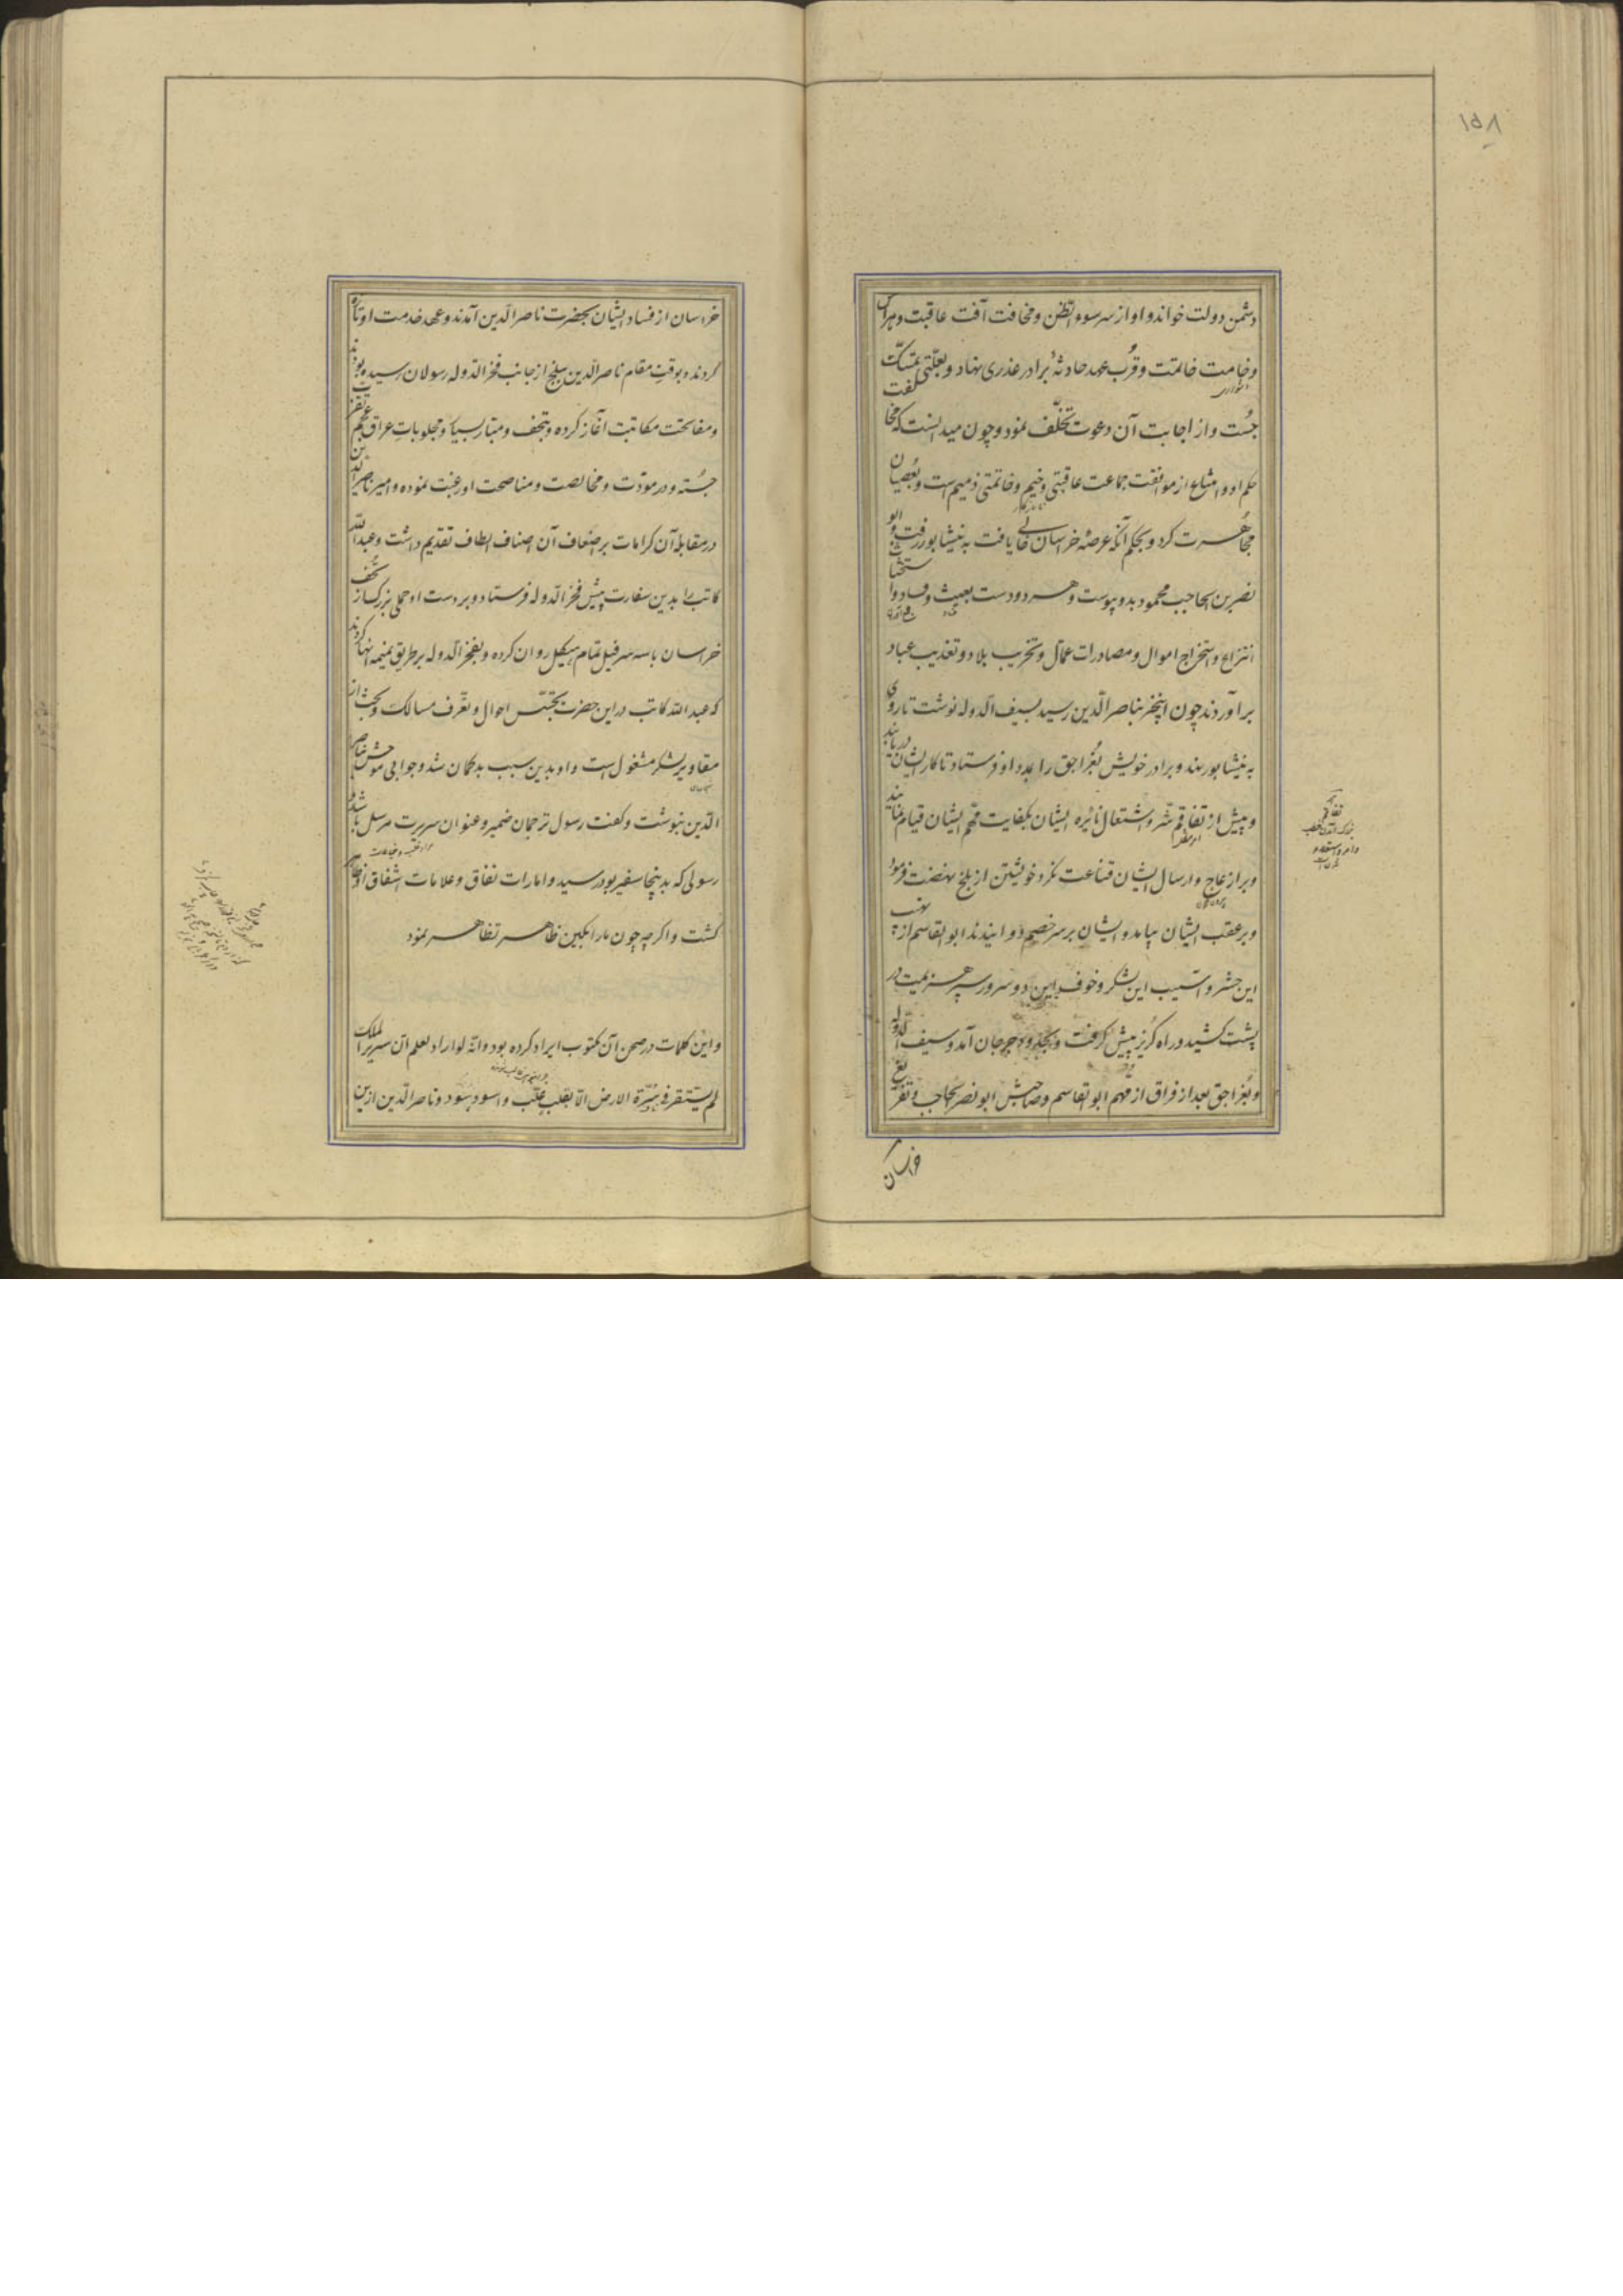 ۱۵۸
دشمن دولت خواند و او از سر سوء الظن و مخافت آفت عاقبت و هراس
وخامت خاتمت و قرب عهد حادثهٔ برادر عذری نهاد و بعلتی تمسک
جست و از اجابت آن دعوت تخلف نمود و چون میدانست که مخالفت
حکم او و امتناع از موافقت جماعت عاقبتی وخیم و خاتمتی ذمیم است و بعصیان
مجاهرت کرد و بحکم آنکه عرصهٔ خراسان خالی یافت به نیشابور رفت و ابو
نصر بن الحاجب محمود بدو پیوست و هر دو دست بعیث و فساد و استحثاث
انتزاع و استخراج اموال و مصادرات عمال و تخریب بلاد و تعذیب عباد
برآوردند چون اینخبر بناصر الدین رسید بسیف الدوله نوشت تا روی
به نیشابور نهد و برادر خویش بغراجق را بمدد او فرستاد تا کار ایشان دریابند
و پیش از تفاقم شر و اشتعال نائره ایشان بکفایت مهم ایشان قیام نمایند
و بر ازعاج و ارسال ایشان قناعت نکرد و خویشتن از بلخ نهضت فرمود
و بر عقب ایشان بیامد و ایشان بر سر خصم دوانیدند ابو القاسم از نهیب
این حشر و آسیب این لشکر و خوف این دو سرور سپر هزیمت در
پشت کشید و راه گریز پیش گرفت و بحدود جرجان آمد و سیف الدوله
و بغراجق بعد از فراق از مهم ابو القاسم و صاحبش ابو نصر حاجب و تفریغ
خراسان
تفاقم
بزرگ شدن
خراسان از فساد ایشان بحضرت ناصر الدین آمدند و عهد خدمت او تازه
کردند و بوقت مقام ناصر الدین ببلخ از جانب فخر الدوله رسولان رسیده بودند
و مفاتحت مکاتبت آغاز کرده و بتحف و مبار بسیار و مجلوبات عراق تقرب
جسته و در مودت و مخالصت و مناصحت او رغبت نموده و امیر ناصر الدین
در مقابلهٔ آن کرامات بر اضعاف آن اصناف الطاف تقدیم داشت و عبد الله
کاتب را بدین سفارت پیش فخر الدوله فرستاد و بر دست او حملی بزرگ از تحف
خراسان با سه سر فیل تمام هیکل روان کرده و بفخر الدوله بر طریق نمیمه انها کردند
که عبد الله کاتب در این حضرت بتجسس احوال و تعرف مسالک و بحث از
مقاویر لشکر مشغول است و او بدین سبب بدگمان شد و جوابی موحش بناصر
الدین نبوشت و گفت رسول ترجمان ضمیر و عنوان سریرت مرسل باشد و
رسولی که بدینجا سفیر بود رسید و امارات نفاق و علامات اشفاق او ظاهر
گشت و اگر چه چون مار انگبین ظاهر تظاهر نمود
و این کلمات در ضمن آن مکتوب ایراد کرده بود و انه لو اراد لعلم ان سریر الملک
لم یستقر فی سرة الارض الا بقلب غلب و اسود سود و ناصر الدین ازین